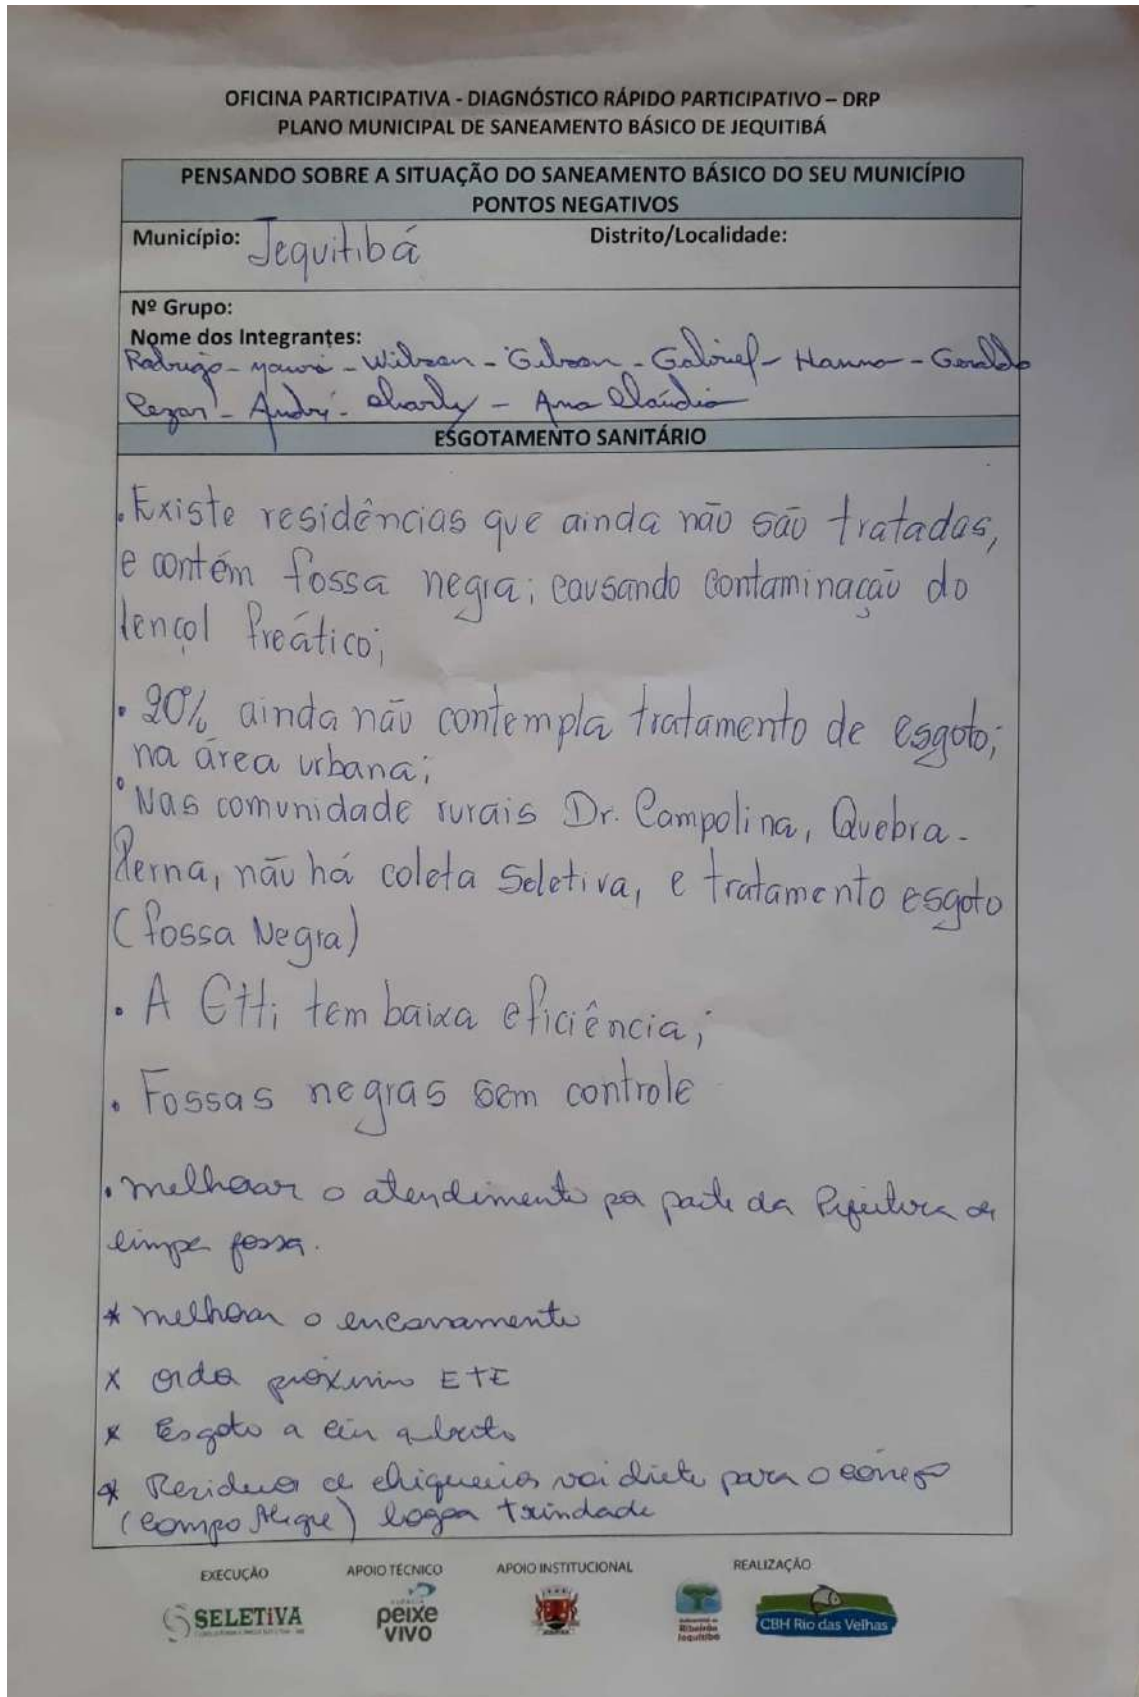 OFICINA PARTICIPATIVA - DIAGNÓSTICO RÁPIDO PARTICIPATIVO – DRP
PLANO MUNICIPAL DE SANEAMENTO BÁSICO DE JEQUITIBÁ
PENSANDO SOBRE A SITUAÇÃO DO SANEAMENTO BÁSICO DO SEU MUNICÍPIO
PONTOS NEGATIVOS
Município: Jequitibá Distrito/Localidade:
Nº Grupo:
Nome dos Integrantes:
Rodrigo - - Wilson - Gilson - Gabriel - Hanna - Geraldo
Cezar - André - Charly - Ana Cláudia
ESGOTAMENTO SANITÁRIO
. Existe residências que ainda não são tratadas,
e contém fossa negra; causando contaminação do
lençol freático;
. 20% ainda não contempla tratamento de esgoto;
na área urbana;
° Nas comunidade rurais Dr. Campolina, Quebra-
Perna, não há coleta Seletiva, e tratamento esgoto
(fossa Negra)
. A tem baixa eficiência;
. Fossas negras sem controle
. melhorar o atendimento por parte da Prefeitura de
limpa fossa.
* melhorar o encanamento
x próximo ETE
* Esgoto a céu aberto
* Residuos de chiqueiros vai direto para o córrego
(Campo Alegre) lagoa trindade
EXECUÇÃO APOIO TÉCNICO APOIO INSTITUCIONAL REALIZAÇÃO
SELETIVA
AGÊNCIA
peixe
vivo
Ribeirão
Jequitibá
CBH Rio das Velhas